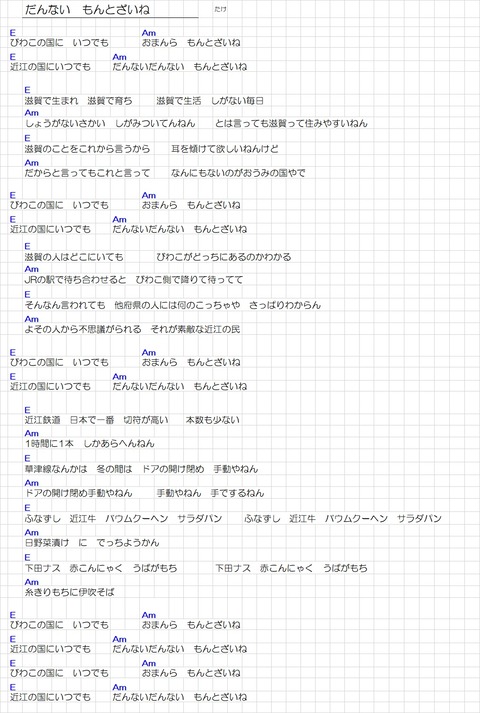 だんない　もんとざいね　　たけ
E　Am
びわこの国に　いつでも　　おまんら　もんとざいね
E　Am
近江の国にいつでも　　だんないだんない　もんとざいね
E
滋賀で生まれ　滋賀で育ち　　滋賀で生活　しがない毎日
Am
しょうがないさかい　しがみついてんねん　　とは言っても滋賀って住みやすいねん
E
滋賀のことをこれから言うから　　耳を傾けて欲しいねんけど
Am
だからと言ってもこれと言って　　なんにもないのがおうみの国やで
E　Am
びわこの国に　いつでも　　おまんら　もんとざいね
E　Am
近江の国にいつでも　　だんないだんない　もんとざいね
E
滋賀の人はどこにいても　　びわこがどっちにあるのかわかる
Am
JRの駅で待ち合わせると　びわこ側で降りて待ってて
E
そんなん言われても　他府県の人には何のこっちゃや　さっぱりわからん
Am
よその人から不思議がられる　それが素敵な近江の民
E　Am
びわこの国に　いつでも　　おまんら　もんとざいね
E　Am
近江の国にいつでも　　だんないだんない　もんとざいね
E
近江鉄道　日本で一番　切符が高い　　本数も少ない
Am
1時間に1本　しかあらへんねん
E
草津線なんかは　冬の間は　ドアの開け閉め　手動やねん
Am
ドアの開け閉め手動やねん　　手動やねん　手でするねん
E
ふなずし　近江牛　バウムクーヘン　サラダパン　　ふなずし　近江牛　バウムクーヘン　サラダパン
Am
日野菜漬け　に　でっちようかん
E
下田ナス　赤こんにゃく　うばがもち　　下田ナス　赤こんにゃく　うばがもち
Am
糸きりもちに伊吹そば
E　Am
びわこの国に　いつでも　　おまんら　もんとざいね
E　Am
近江の国にいつでも　　だんないだんない　もんとざいね
E　Am
びわこの国に　いつでも　　おまんら　もんとざいね
E　Am
近江の国にいつでも　　だんないだんない　もんとざいね